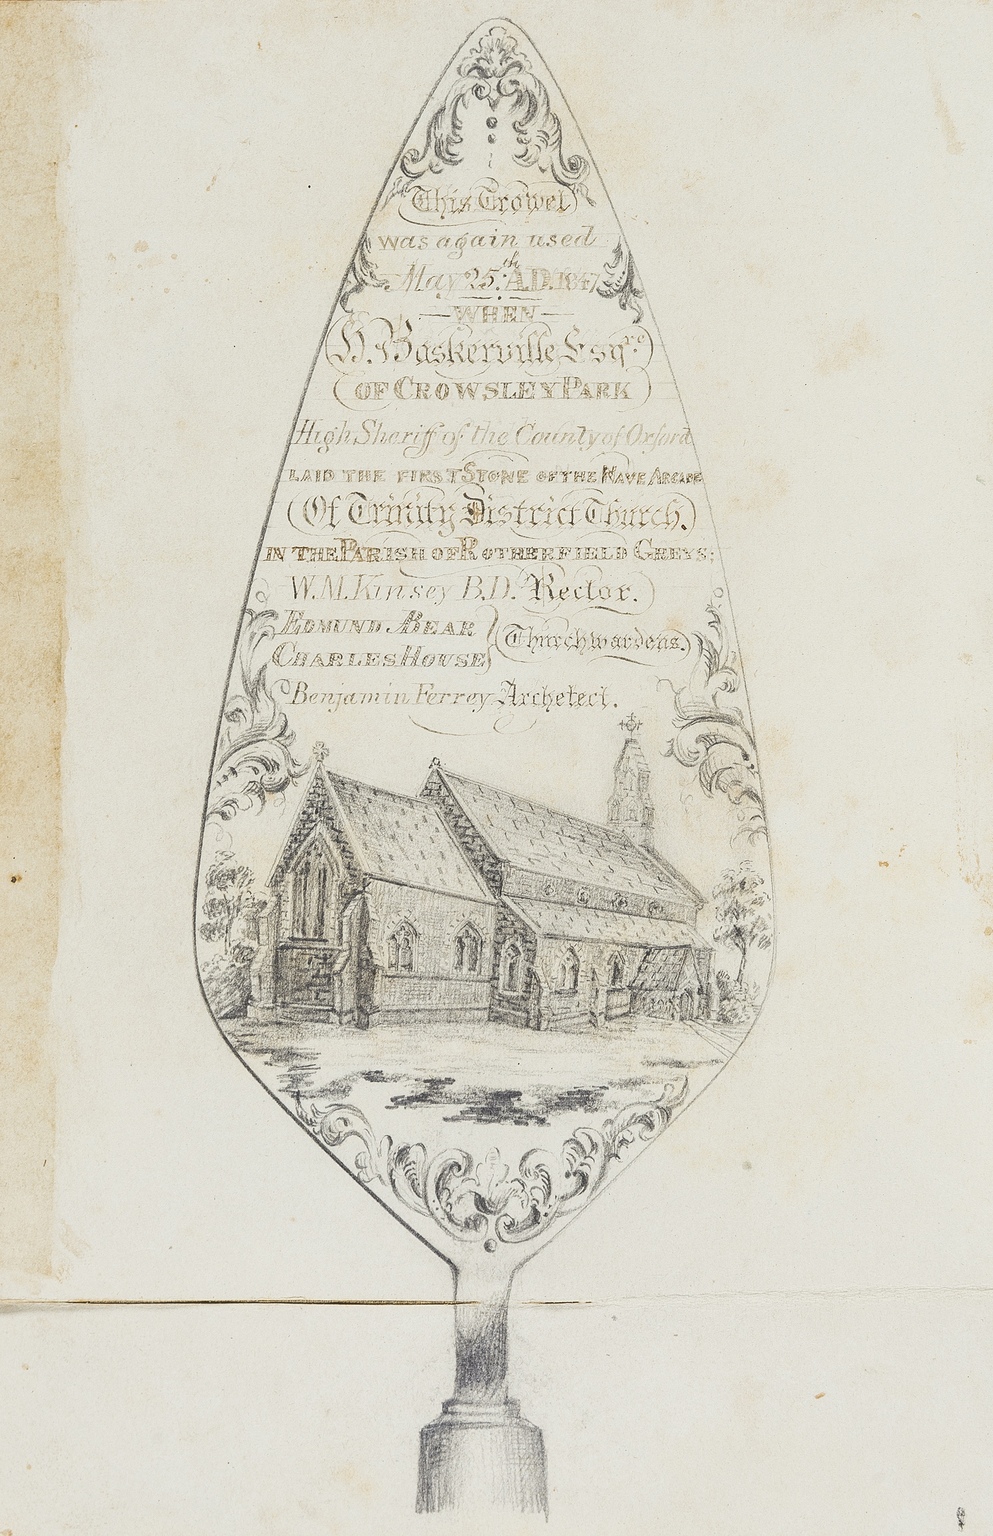 This Trowel
was again used
May 25.th A.D. 1847
WHEN
H. Baskerville Esqre.
OF CROWSLEY PARK
High Sheriff of the County of Oxford
LAID THE FIRST STONE OF THE NAVE ARCADE
Of Trinity District Church.
IN THE PARISH OF ROTHERFIELD GREYS;
W. M. Kinsey B.D. Rector.
EDMUND BEAR
CHARLES HOUSE
Churchwardens.
Benjamin Ferrey Archetect.